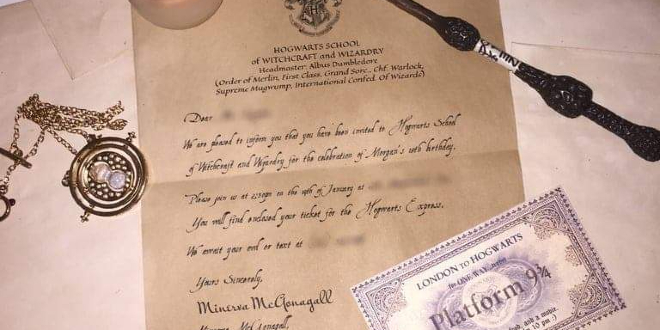 HOGWARTS SCHOOL
of WITCHCRAFT and WIZARDRY
Headmaster: Albus Dumbledore
(Order of Merlin, First Class, Grand Sorc., Chf. Warlock,
Supreme Mugwump, International Confed. Of Wizards)
Dear
We are pleased to inform you that you have been invited to Hogwarts School
of Witchcraft and Wizardry for the celebration of Morgan's birthday.
Please join us at on the of January at
You will find enclosed your ticket for the Hogwarts Express.
We await your owl or text at
Yours Sincerely,
Minerva McGonagall
McGonagall,
LONDON TO HOGWARTS
for ONE WAY travel
Platform 9¾